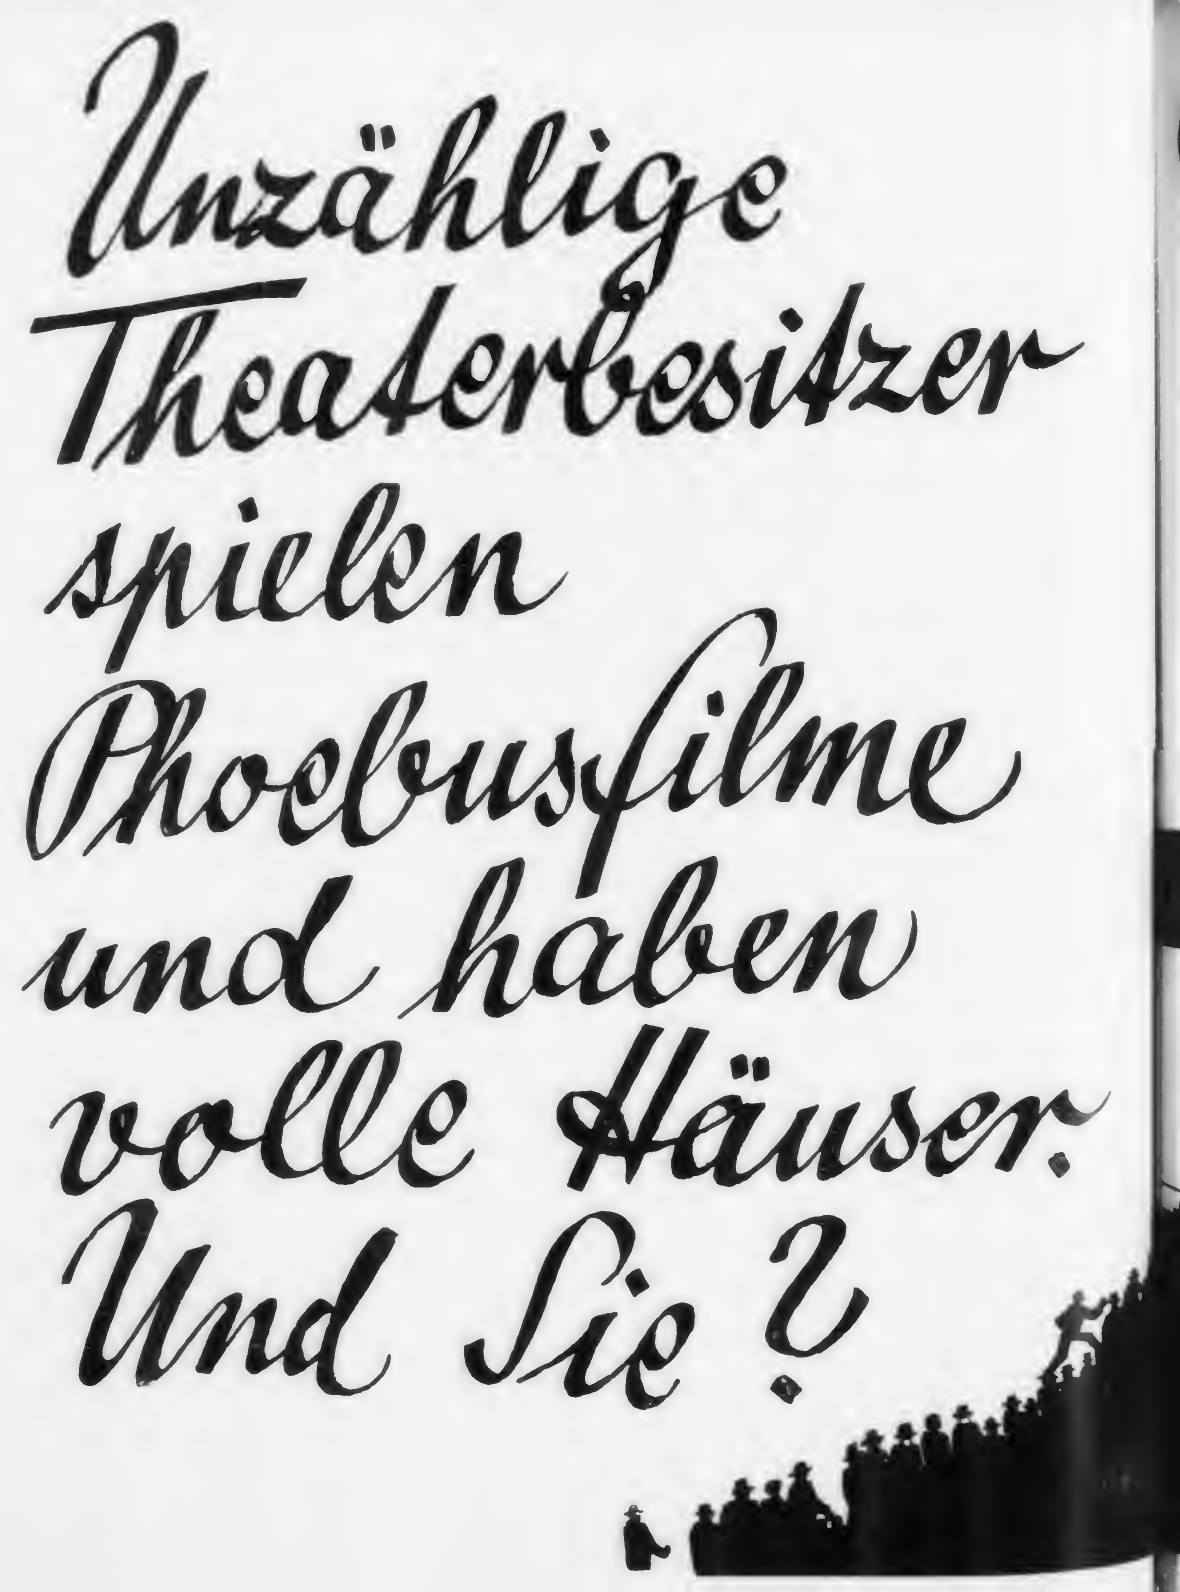 Unzählige
Theaterbesitzer
spielen
Phoebusfilme
und haben
volle Häuser.
Und Sie?